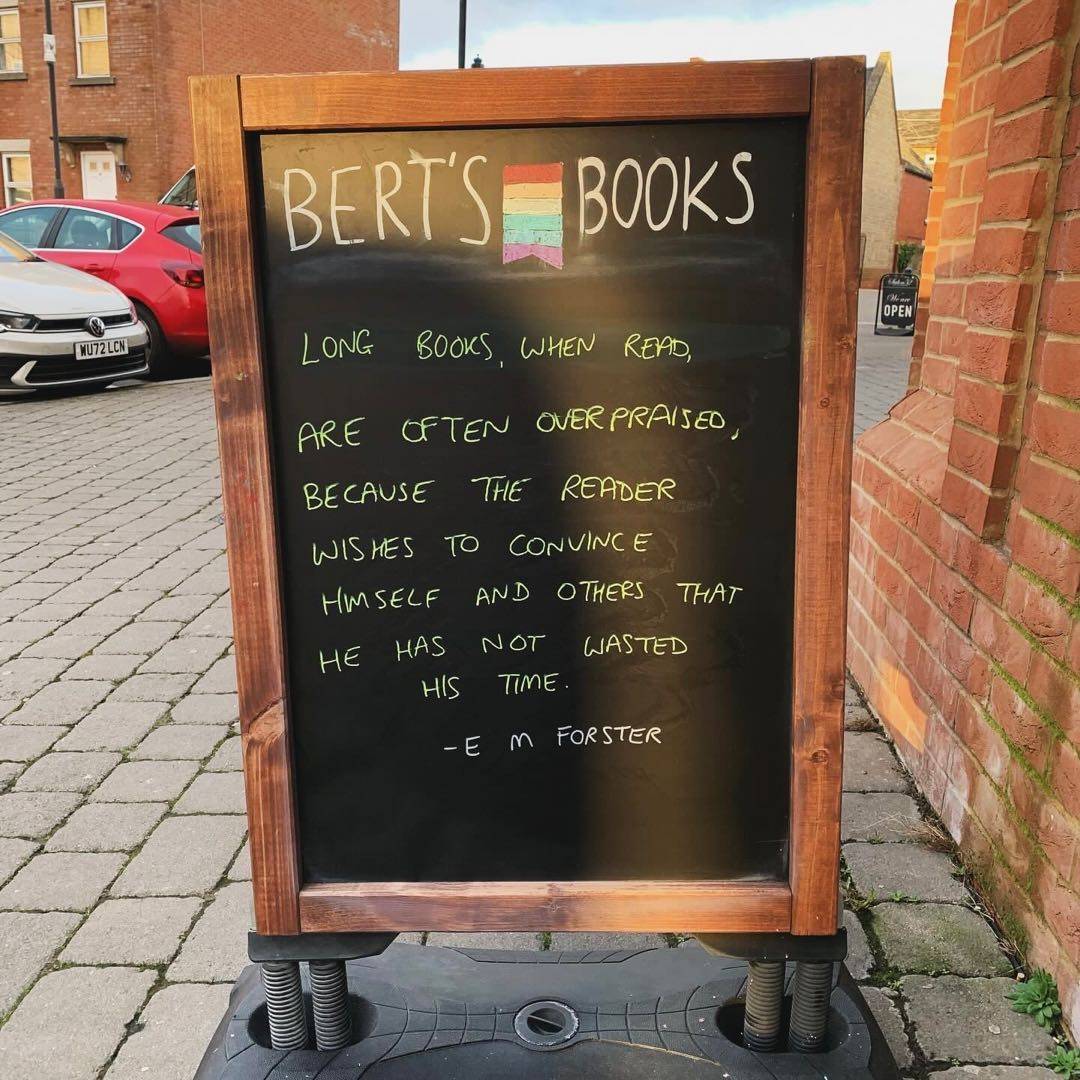 BERT'S BOOKS
LONG BOOKS, WHEN READ,
ARE OFTEN OVERPRAISED,
BECAUSE THE READER
WISHES TO CONVINCE
HIMSELF AND OTHERS THAT
HE HAS NOT WASTED
HIS TIME.
-E M FORSTER
WU72 LCN
We are
OPEN